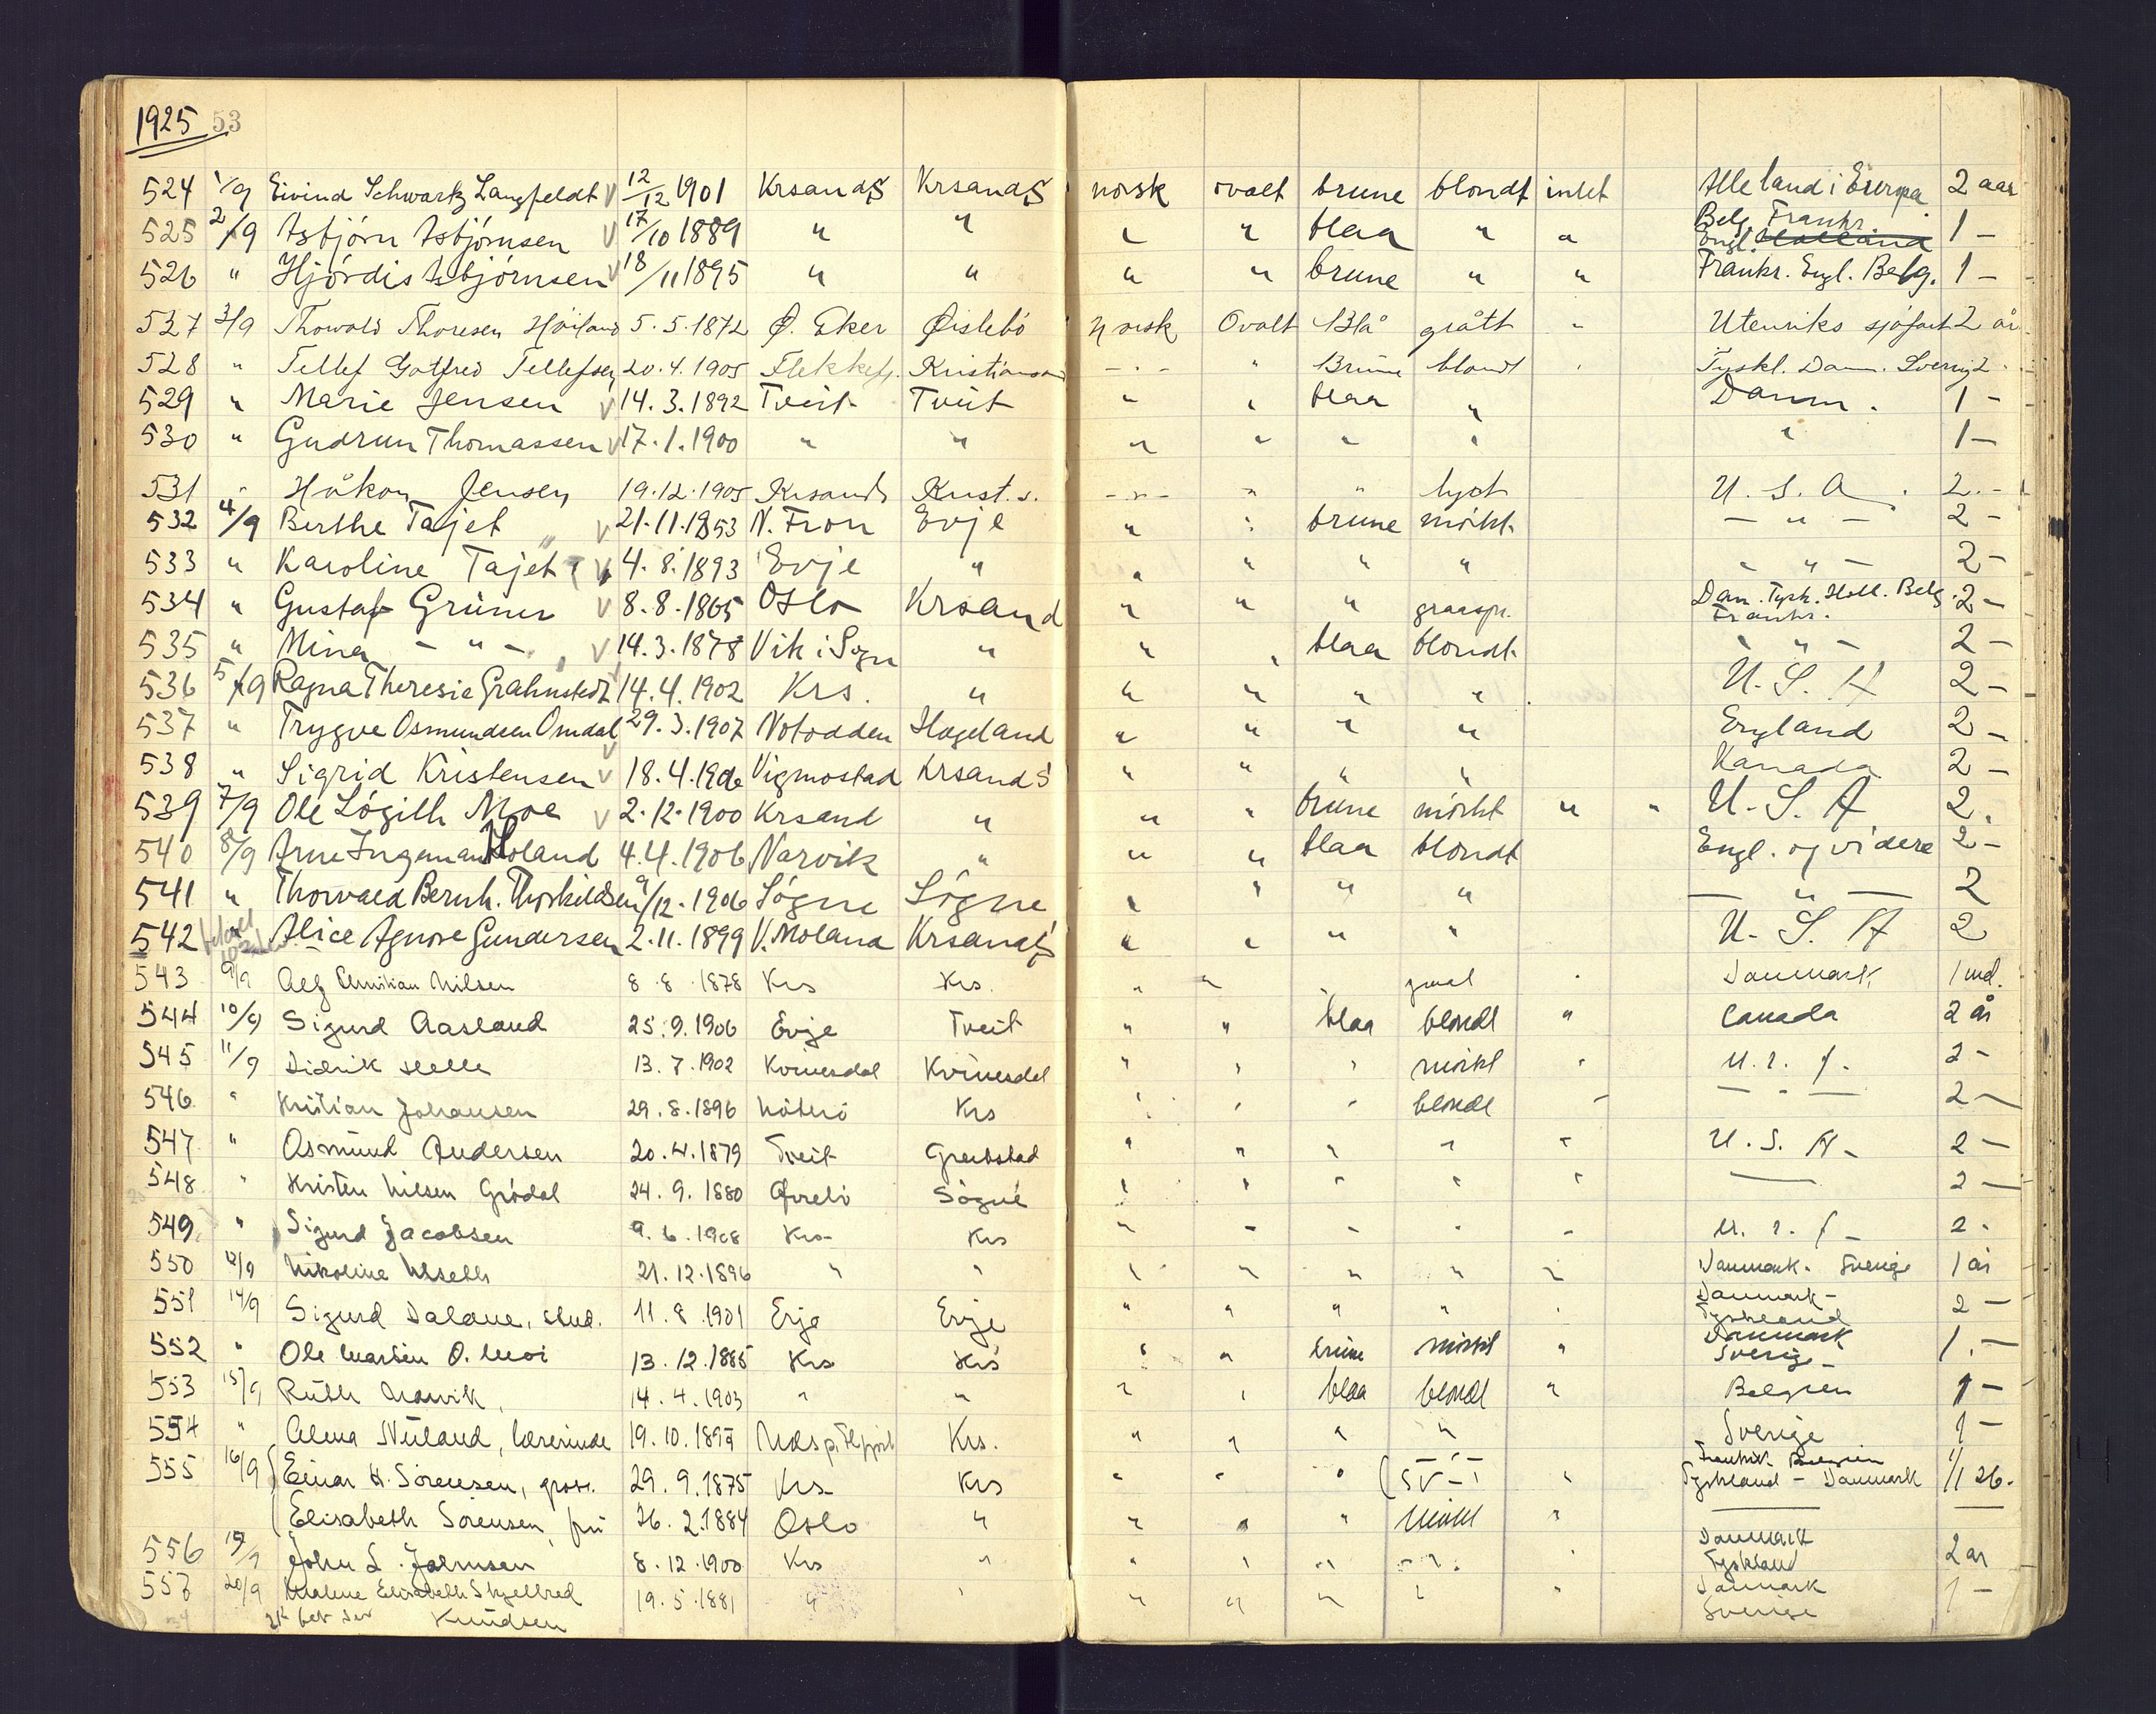 1925 53
524 1/9 Eivind Schwartz Langfeldt V 12/12 1901 KrsandS KrsandS norsk ovalt brune blondt intet Alle land i Europa 2 aar
525 2/9 Asbjörn Asbjörnsen V 17/10 1889 " " " " blaa " " Belg. Frankr. Engl. Holland 1 -
526 " Hjördis Asbjörnsen V 18/11 1895 " " " " brune " " Frankr. Engl. Belg. 1 -
527 3/9 Thorvald Thoresen Höiland 5.5.1872 Ø. Eker Øislebö Norsk Ovalt Blå grått - Utenriks sjöfart 2 år.
528 " Tellef Gotfred Tellefsen 20.4.1905 Flekkefj. Kristiansand -"- " Brune blondt " Tyskl. Danm. Sverig 2 -
529 " Marie Jensen V 14.3.1892 Tveit Tveit " " blaa " Danm. 1 -
530 " Gudrun Thomassen V 17.1.1900 " " " " " " " 1 -
531 " Håkon Jensen 19.12.1905 Krsands Krist. s. -"- " " lyst U. S. A. 2 -
532 4/9 Berthe Tajet V 21.11.1853 N. Fron Evje " " brune mörkt - " - 2 -
533 " Karoline Tajet V 4.8.1893 Evje " " " " " - " - 2 -
534 " Gustaf Grüner V 8.8.1865 Oslo Krsand " " " graaspr. Dan. Tysk. Holl. Belg. Frankr. 2 -
535 " Mina - " - V 14.3.1878 Vik i Sogn " " " blaa blondt - " - 2 -
536 5/9 Ragna Theresie Grahnstedt V 14.4.1902 Krs. " " " " " U. S. A 2 -
537 " Trygve Osmundsen Omdal 29.3.1907 Notodden Hageland " " " " England 2 -
538 " Sigrid Kristensen V 18.4.1906 Vigmostad KrsandS " " " " Kanada 2 -
539 7/9 Ole Lögith Moe V 2.12.1900 Krsand " " " brune mörkt " " U. S. A 2.
540 8/9 Arne Ingeman Holand 4.4.1906 Narvik " " " blaa blondt Engl. og videre 2 -
541 " Thorvald Bernh. Thorkildsen 9/12.1906 Sögne Sögne " " " " - " - 2
542 " Alice Agnore Gundersen 2.11.1899 V. Moland KrsandS " " " " U. S. A 2
543 9/9 Alf Christian Nilsen 8.8.1878 Krs Krs. " " " " Danmark 1 md.
544 10/9 Sigurd Aasland 25.9.1906 Evje Tveit " " blaa blondt " Canada 2 år
545 11/9 Didrik Helle 13.7.1902 Kvinesdal Kvinesdal " " " mörkt " U. S. A. 2 -
546 " Kristian Johansen 29.8.1896 Nöterö Krs " " " blondt " - " - 2 -
547 " Osmund Andersen 20.4.1879 Tveit Greibstad " " " " " U. S. A - 2 -
548 " Kristen Nilsen Grödal 24.9.1880 Øvrebö Sögne " " " " " — 2 -
549 " Sigurd Jacobsen 9.6.1908 Krs Krs " " " " " U. S. A 2 -
550 12/9 Nikoline 21.12.1896 " " " " " " " Danmark. Sverige 1 år
551 14/9 Sigurd Dalane, stud. 11.8.1901 Evje Evje " " " " " Danmark - Tyskland 2 -
552 " Ole Martin O. Moi 13.12.1885 Krs Krs " " brune mörkt " Danmark Sverige - 1. -
553 15/9 Ruth Narvik, 14.4.1903 " " " " blaa blondt " Belgien 1 -
554 " Alma Neuland, lærerinde 19.10.1897 Krs. " " " " Sverige 1 -
555 16/9 Einar H. Sörensen, gross. 29.9.1875 Krs Krs " " " " Frankrik Belgien Tyskland - Danmark 1/1 26.
Elisabeth Sörensen, fru 26.2.1884 Oslo " " " " mörkt " — —
556 19/9 John S. Jahnsen 8.12.1900 Krs " " " " " " Danmark Tyskland 2 år
557 20/9 Malene Elisabeth Skjelbred Knudsen 19.5.1881 " " " " " " " Danmark Sverige 1 -